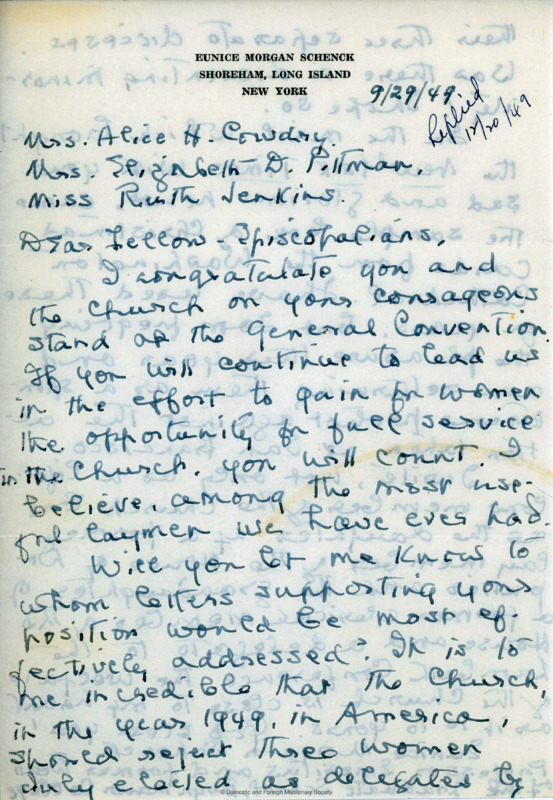 EUNICE MORGAN SCHENCK
SHOREHAM, LONG ISLAND
NEW YORK
9/29/49
Replied
12/20/49
Mrs. Alice H. Cowdry.
Mrs. Elizabeth D. Pittman.
Miss Ruth Jenkins.
Dear Fellow-Episcopalians,
I congratulate you and
the Church on your courageous
stand at the General Convention.
If you will continue to lead us
in the effort to gain for women
the opportunity for full service
in the Church, you will count, I
believe, among the most use-
ful laymen we have ever had.
Will you let me know to
whom letters supporting your
position would be most ef-
fectively addressed? It is to
me incredible that the Church,
in the year 1949, in America,
should reject three women
duly elected as delegates by
© Domestic and Foreign Missionary Society